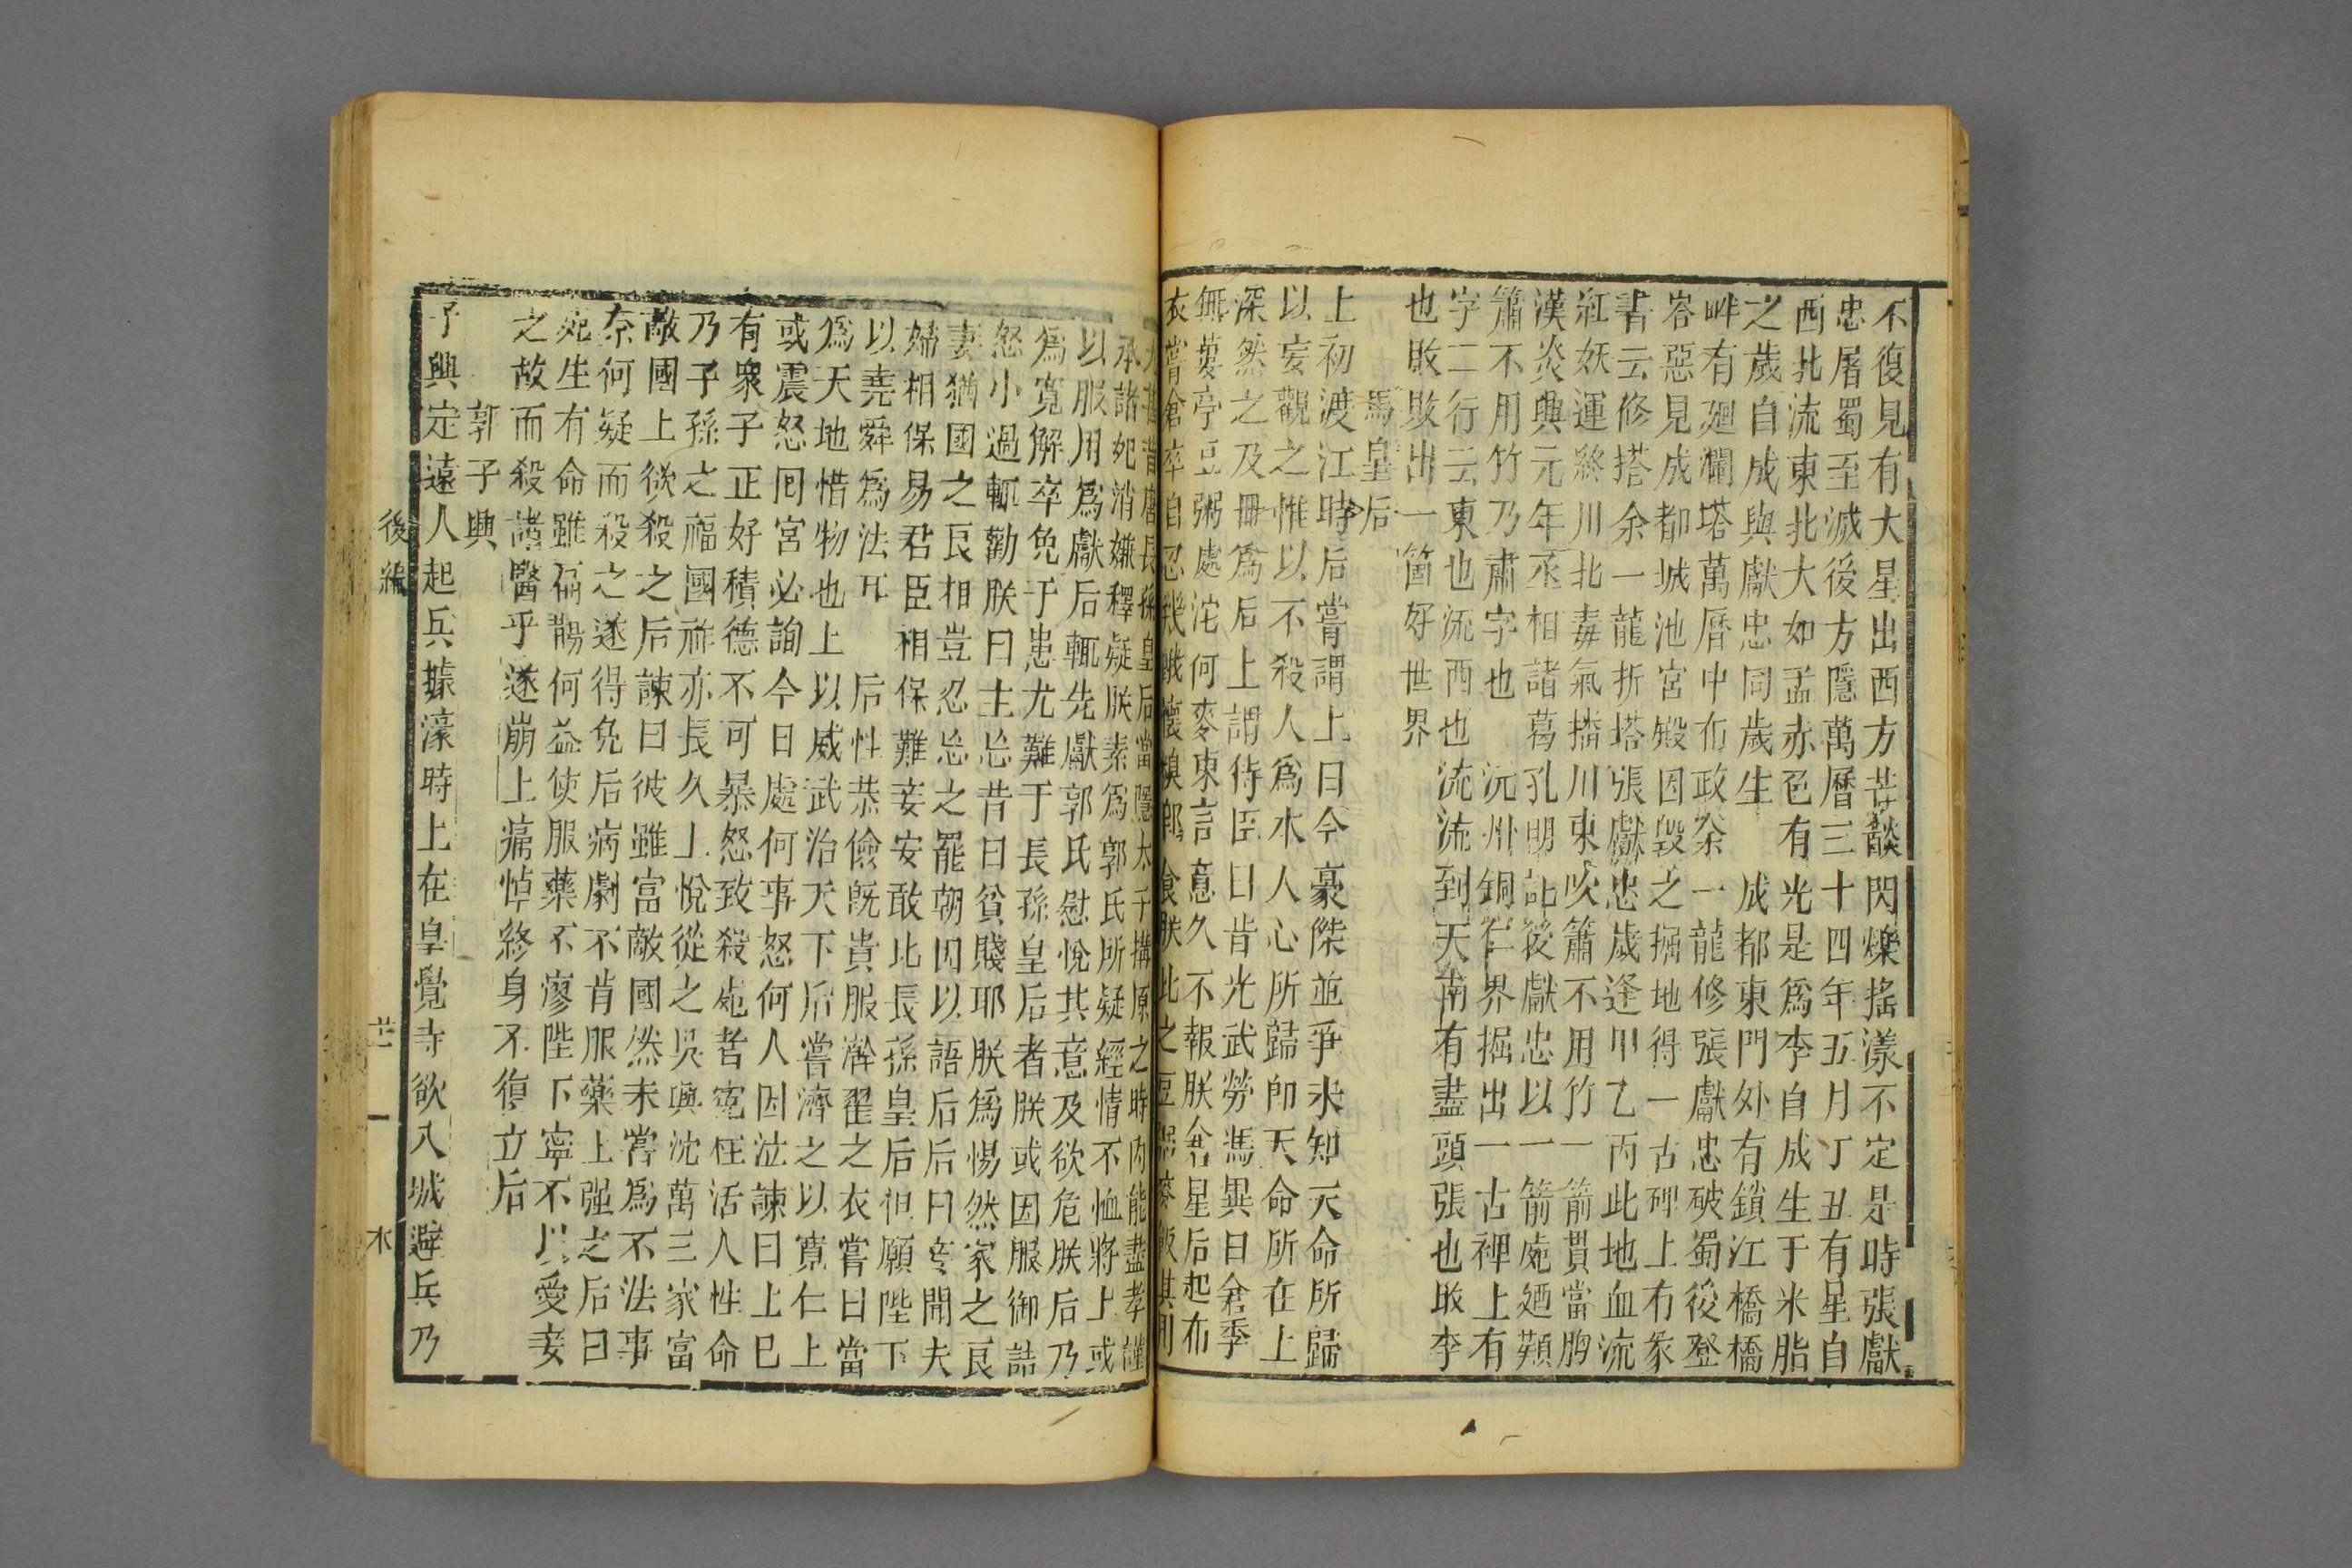 不復見有大星出西方芒燄閃爍搖漾不定是時張獻
忠屠蜀至滅後方隱萬曆三十四年五月丁丑有星自
西北流東北大如盂赤色有光是為李自成生于米脂
之歲自成與獻忠同歲生　成都東門外有鎖江橋橋
畔有廻瀾塔萬曆中布政余一龍修張獻忠破蜀後登
見成都城池宮殿因毀之掘地得一古碑上有篆
書云修塔余一龍折塔張獻忠歲逢甲乙丙此地血流
紅妖運終川北毒氣播川東吹簫不用竹一箭貫當胸
漢炎興元年丞相諸葛孔明記後獻忠以一箭死廼類
簫不用竹乃肅字也　沅州銅仁界掘出一古碑上有
字二行云東也流西也流流到天南有盡頭張也敗李
也敗敗出一箇好世界
馬皇后
上初渡江時后嘗謂上曰今豪傑並爭未知天命所歸
以妾觀之惟以不殺人為本人心所歸卽天命所在上
深然之及冊為后上謂侍臣曰昔光武勞馮異曰倉季
無蔞亭豆粥處沱何麥束言意久不報朕念君星后起布
衣嘗倉卒自忍幾餓懷糗餌食朕比之豆粥麥飯其
甚昔唐長孫皇后當隱太子搆原之時內能盡孝謹
承諸死消嫌釋疑朕素為郭氏所疑經情不恤將上或
以服用為獻后輒先獻郭氏慰悅其意及欲危朕后乃
為寬解卒免于患尤難于長孫皇后者朕或因服御詰
怒小過輒勸朕曰主忘昔日貧賤耶朕為惕然家之良
妻猶國之良相豈忍忘之罷朝因以語后后曰妾聞夫
婦相保易君臣相保難妾安敢比長孫皇后但願陛下
以堯舜為法耳　后性恭儉旣貴服澣濯之衣嘗曰當
為天地惜物也上以威武治天下后嘗濟之以寬仁上
或震怒囘宮必詢今日處何事怒何人因泣諫曰上已
有衆子正好積德不可暴怒致殺死者寃枉活人性命
乃子孫之福國祚亦長久上悅從之吳興沈萬三家富
敵國上欲殺之后諫曰彼雖富敵國然未嘗為不法事
奈何疑而殺之遂得免后病劇不肯服藥上强之后曰
死生有命雖扁鵲何益使服藥不瘳陛下寧不以愛妾
之故而殺諸醫乎遂崩上痛悼終身不復立后
郭子興
子興定遠人起兵據濠時上在皇覺寺欲入城避兵乃
後編